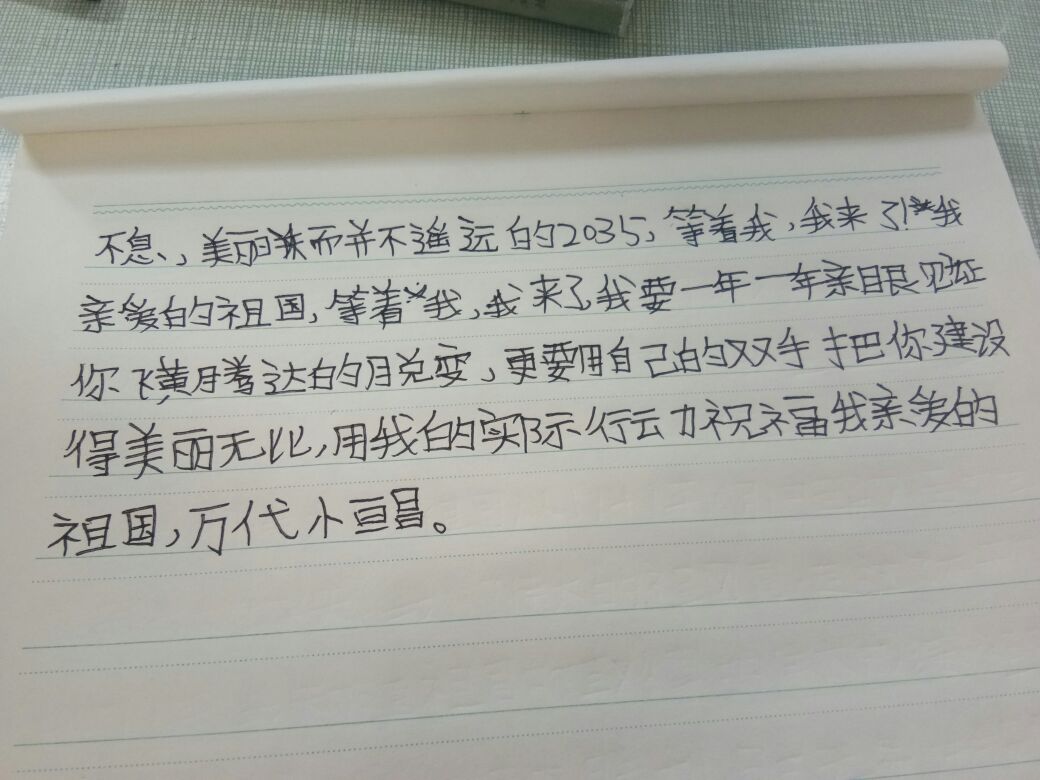 不息、，美丽而并不遥远的2035，等着我，我来了！我
亲爱的祖国，等着我，我来了，我要一年一年亲眼见证
你飞黄腾达的蜕变，更要用自己的双手把你建设
得美丽无比，用我的实际行动祝福我亲爱的
祖国，万代永昌。